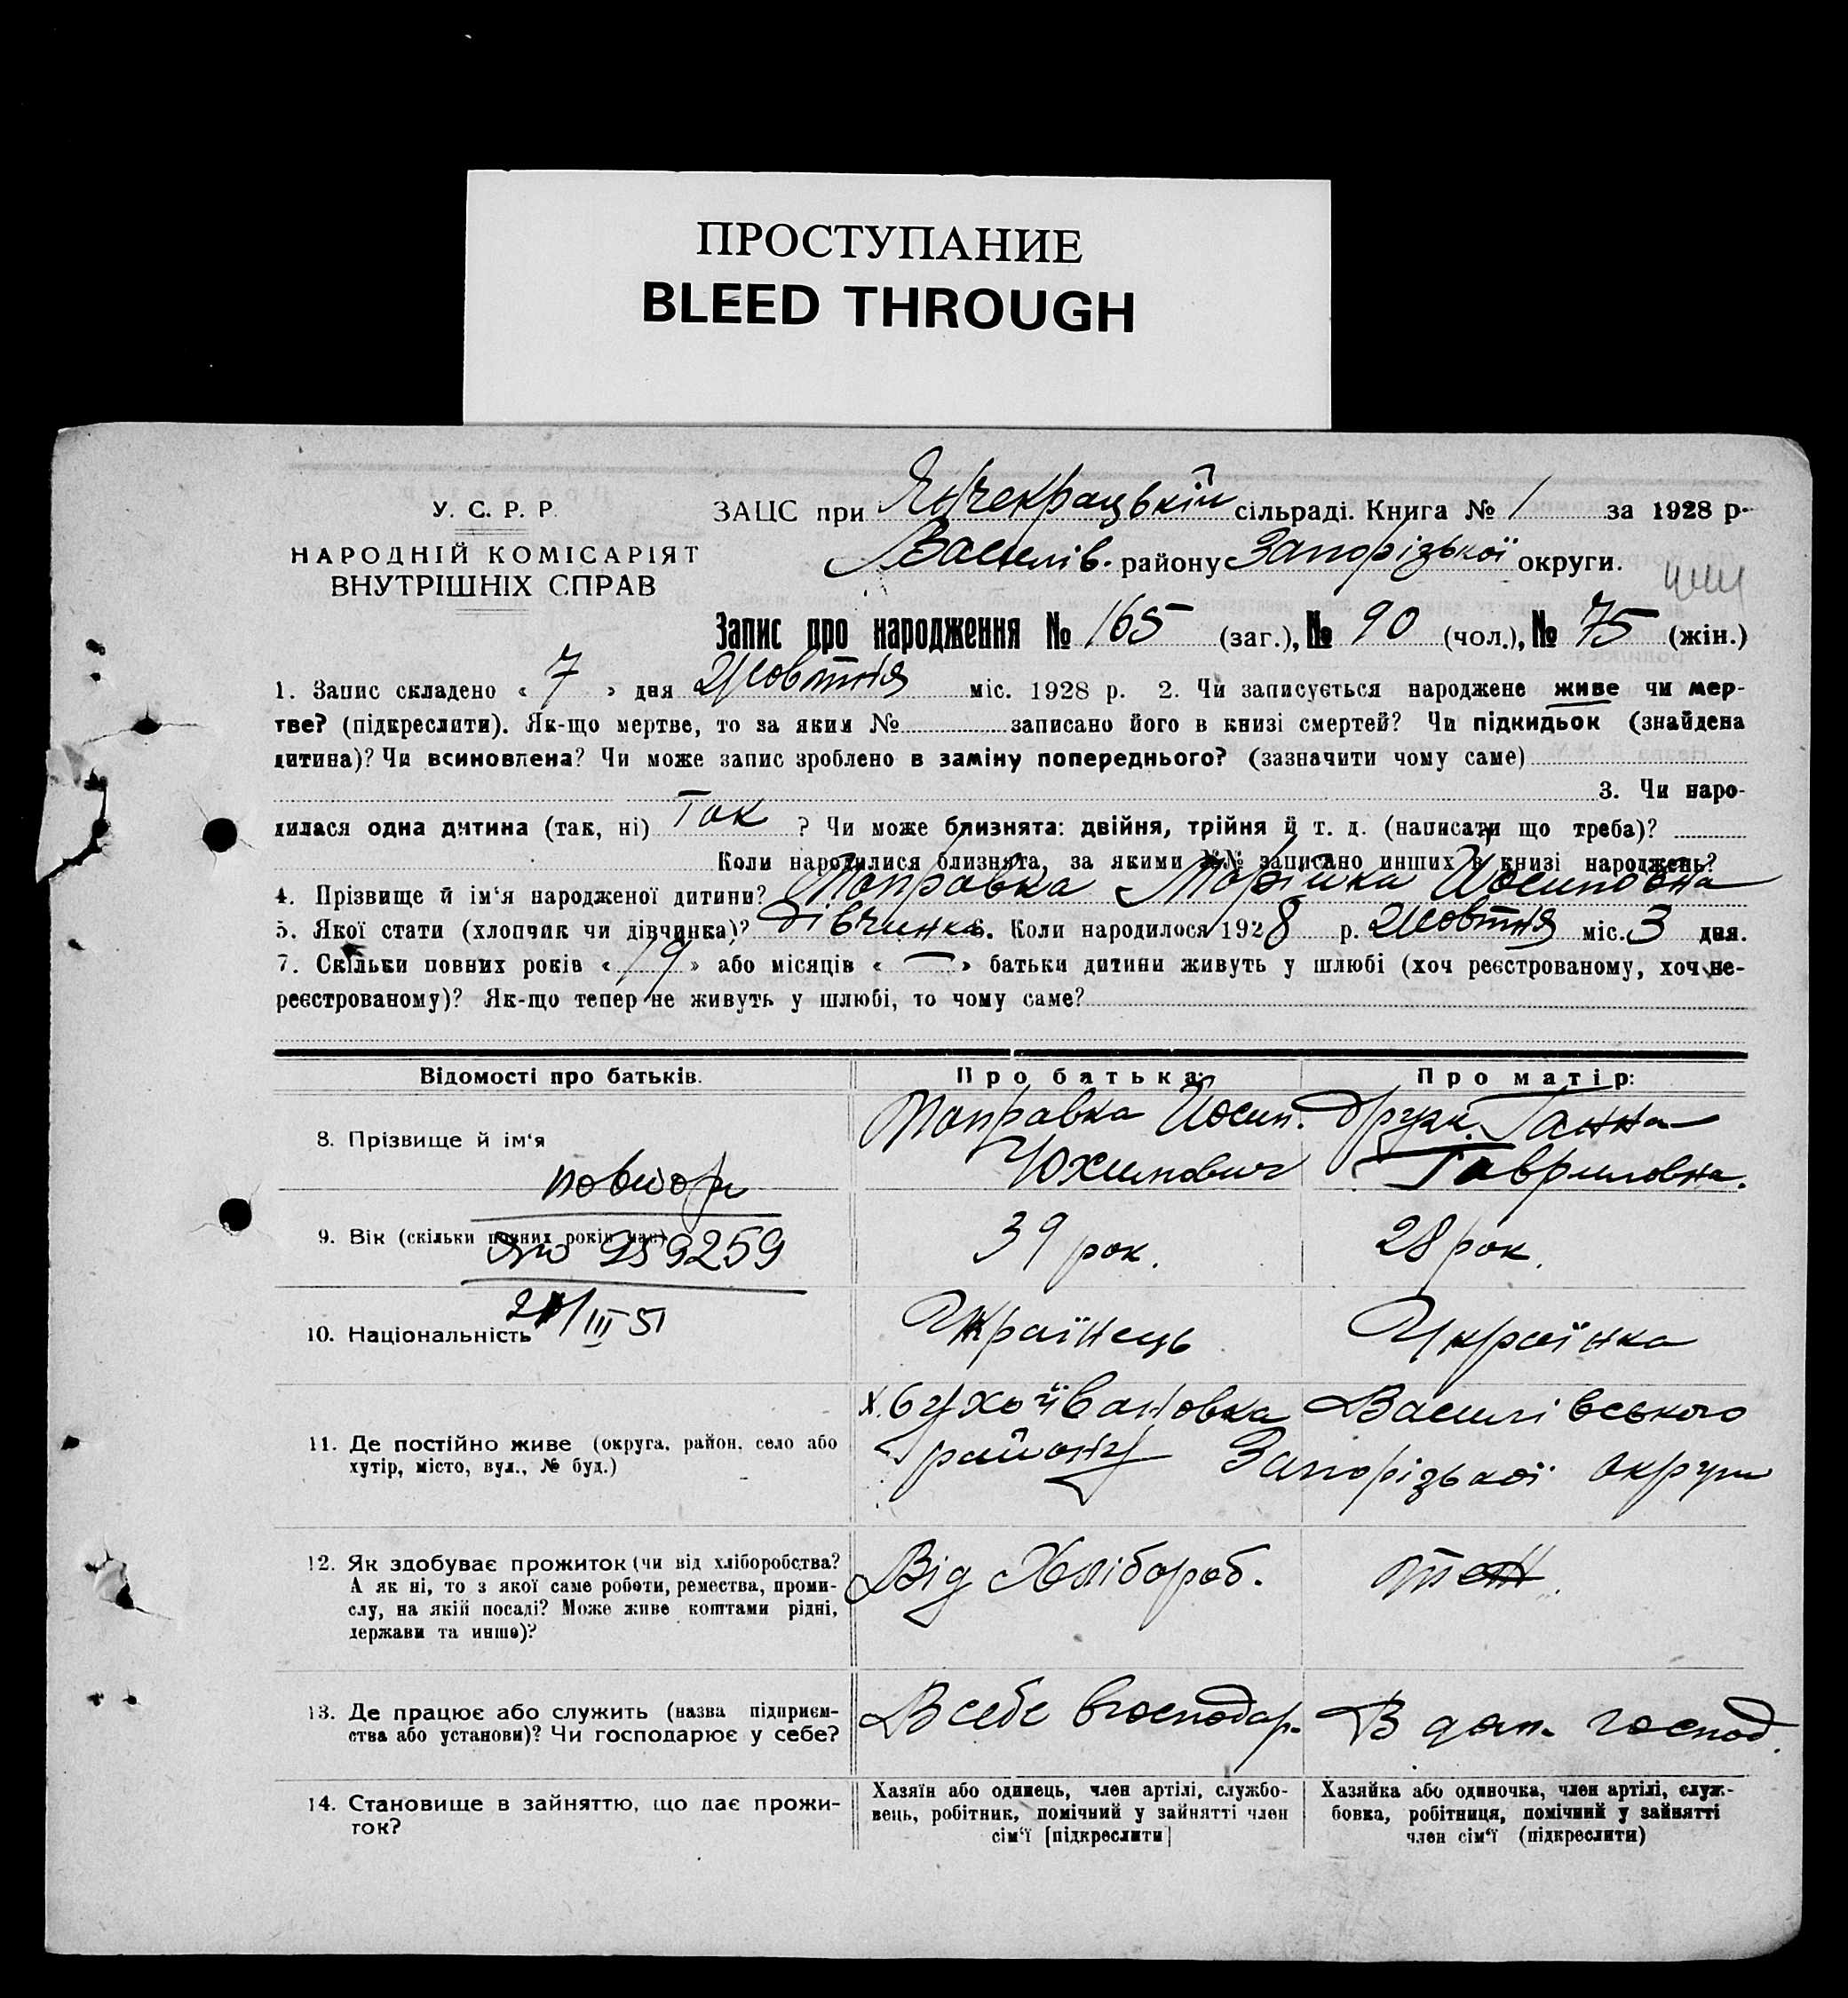 ПРОСТУПАНИЕ
BLEED THROUGH
У. С. Р. Р.
НАРОДНІЙ КОМІСАРІЯТ
ВНУТРІШНІХ СПРАВ
ЗАЦС при Янчекрацькій сільраді. Книга № 1 за 1928 р.
Василів. району Запорізької округи.
Запис про народження № 165 (заг.), № 90 (чол.), № 75 (жін.)
1. Запис складено « 7 » дня Жовтня міс. 1928 р. 2. Чи записується народжене живе чи мер-
тве? (підкреслити). Як-що мертве, то за яким № записано його в книзі смертей? Чи підкидьок (знайдена
дитина)? Чи всиновлена? Чи може запис зроблено в заміну попереднього? (зазначити чому саме)
3. Чи наро-
дилася одна дитина (так, ні) Так ? Чи може близнята: двійня, трійня й т. д. (написати що треба)?
Коли народилися близнята, за якими №№ записано инших в книзі народжень?
4. Прізвище й ім‘я народженої дитини? Поправка Марійка Йосиповна
5. Якої стати (хлопчик чи дівчинка)? Дівчинка 6. Коли народилося 1928 р. Жовтня міс. 3 дня.
7. Скільки повних років « 9 » або місяців « — » батьки дитини живуть у шлюбі (хоч реєстрованому, хоч не-
реєстрованому)? Як-що тепер не живуть у шлюбі, то чому саме?
Відомості про батьків. Про батька: Про матір:
8. Прізвище й ім‘я
Поправка Йосип. Юхимович
Друж. Ганна Гавриловна.
9. Вік (скільки повних років має) 39 рок. 28 рок.
959259
21/III 51
10. Національність Українець Українка
11. Де постійно живе (округа, район, село або
хутір, місто, вул., № буд.)
х. Сухоівановка Василівського
району Запорізької округи
12. Як здобуває прожиток (чи від хліборобства?
А як ні, то з якої саме роботи, ремества, проми-
слу, на якій посаді? Може живе коштами рідні,
держави та инше)?
Від Хлібороб. теж.
13. Де працює або служить (назва підприєм-
ства або установи)? Чи господарює у себе?
В себе в господар. В дом. господ.
14. Становище в зайняттю, що дає прожи-
ток?
Хазяїн або одинець, член артілі, службо-
вець, робітник, помічний у зайнятті член
сім‘ї [підкреслити]
Хазяйка або одиночка, член артілі, служ-
бовка, робітниця, помічний у зайнятті
член сім‘ї (підкреслити)